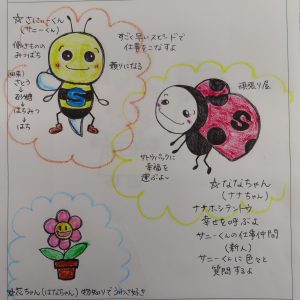 ☆さにぃーくん
(サニーくん)
働きものの
みつばち
(由来)
さとう
↓
砂糖
↓
はちみつ
↓
はち
すごく早いスピードで
仕事をこなすよ
頼りになる
S
頑張り屋
S
サトウパックに
幸福を
運ぶよ〜
☆ななちゃん
(ナナちゃん)
ナナホシテントウ
幸せを呼ぶよ
サニーくんの仕事仲間
(新人)
サニーくんに色々と
質問するよ
(はなちゃん) 物知りでうわさ好き